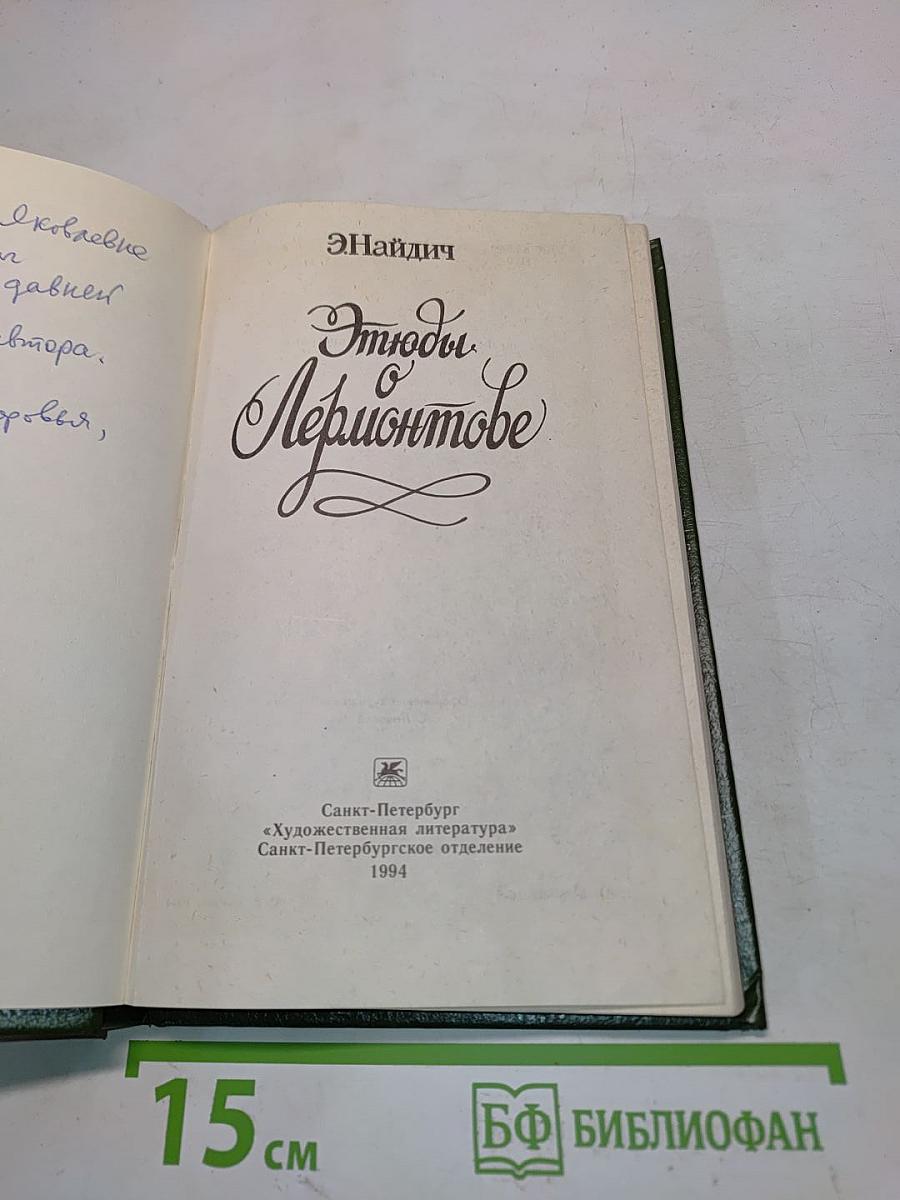 Яковлевне
давней
автора.
Э.Найдич
Этюды
о
Лермонтове
Санкт-Петербург
«Художественная литература»
Санкт-Петербургское отделение
1994
15 см
БФ БИБЛИОФАН